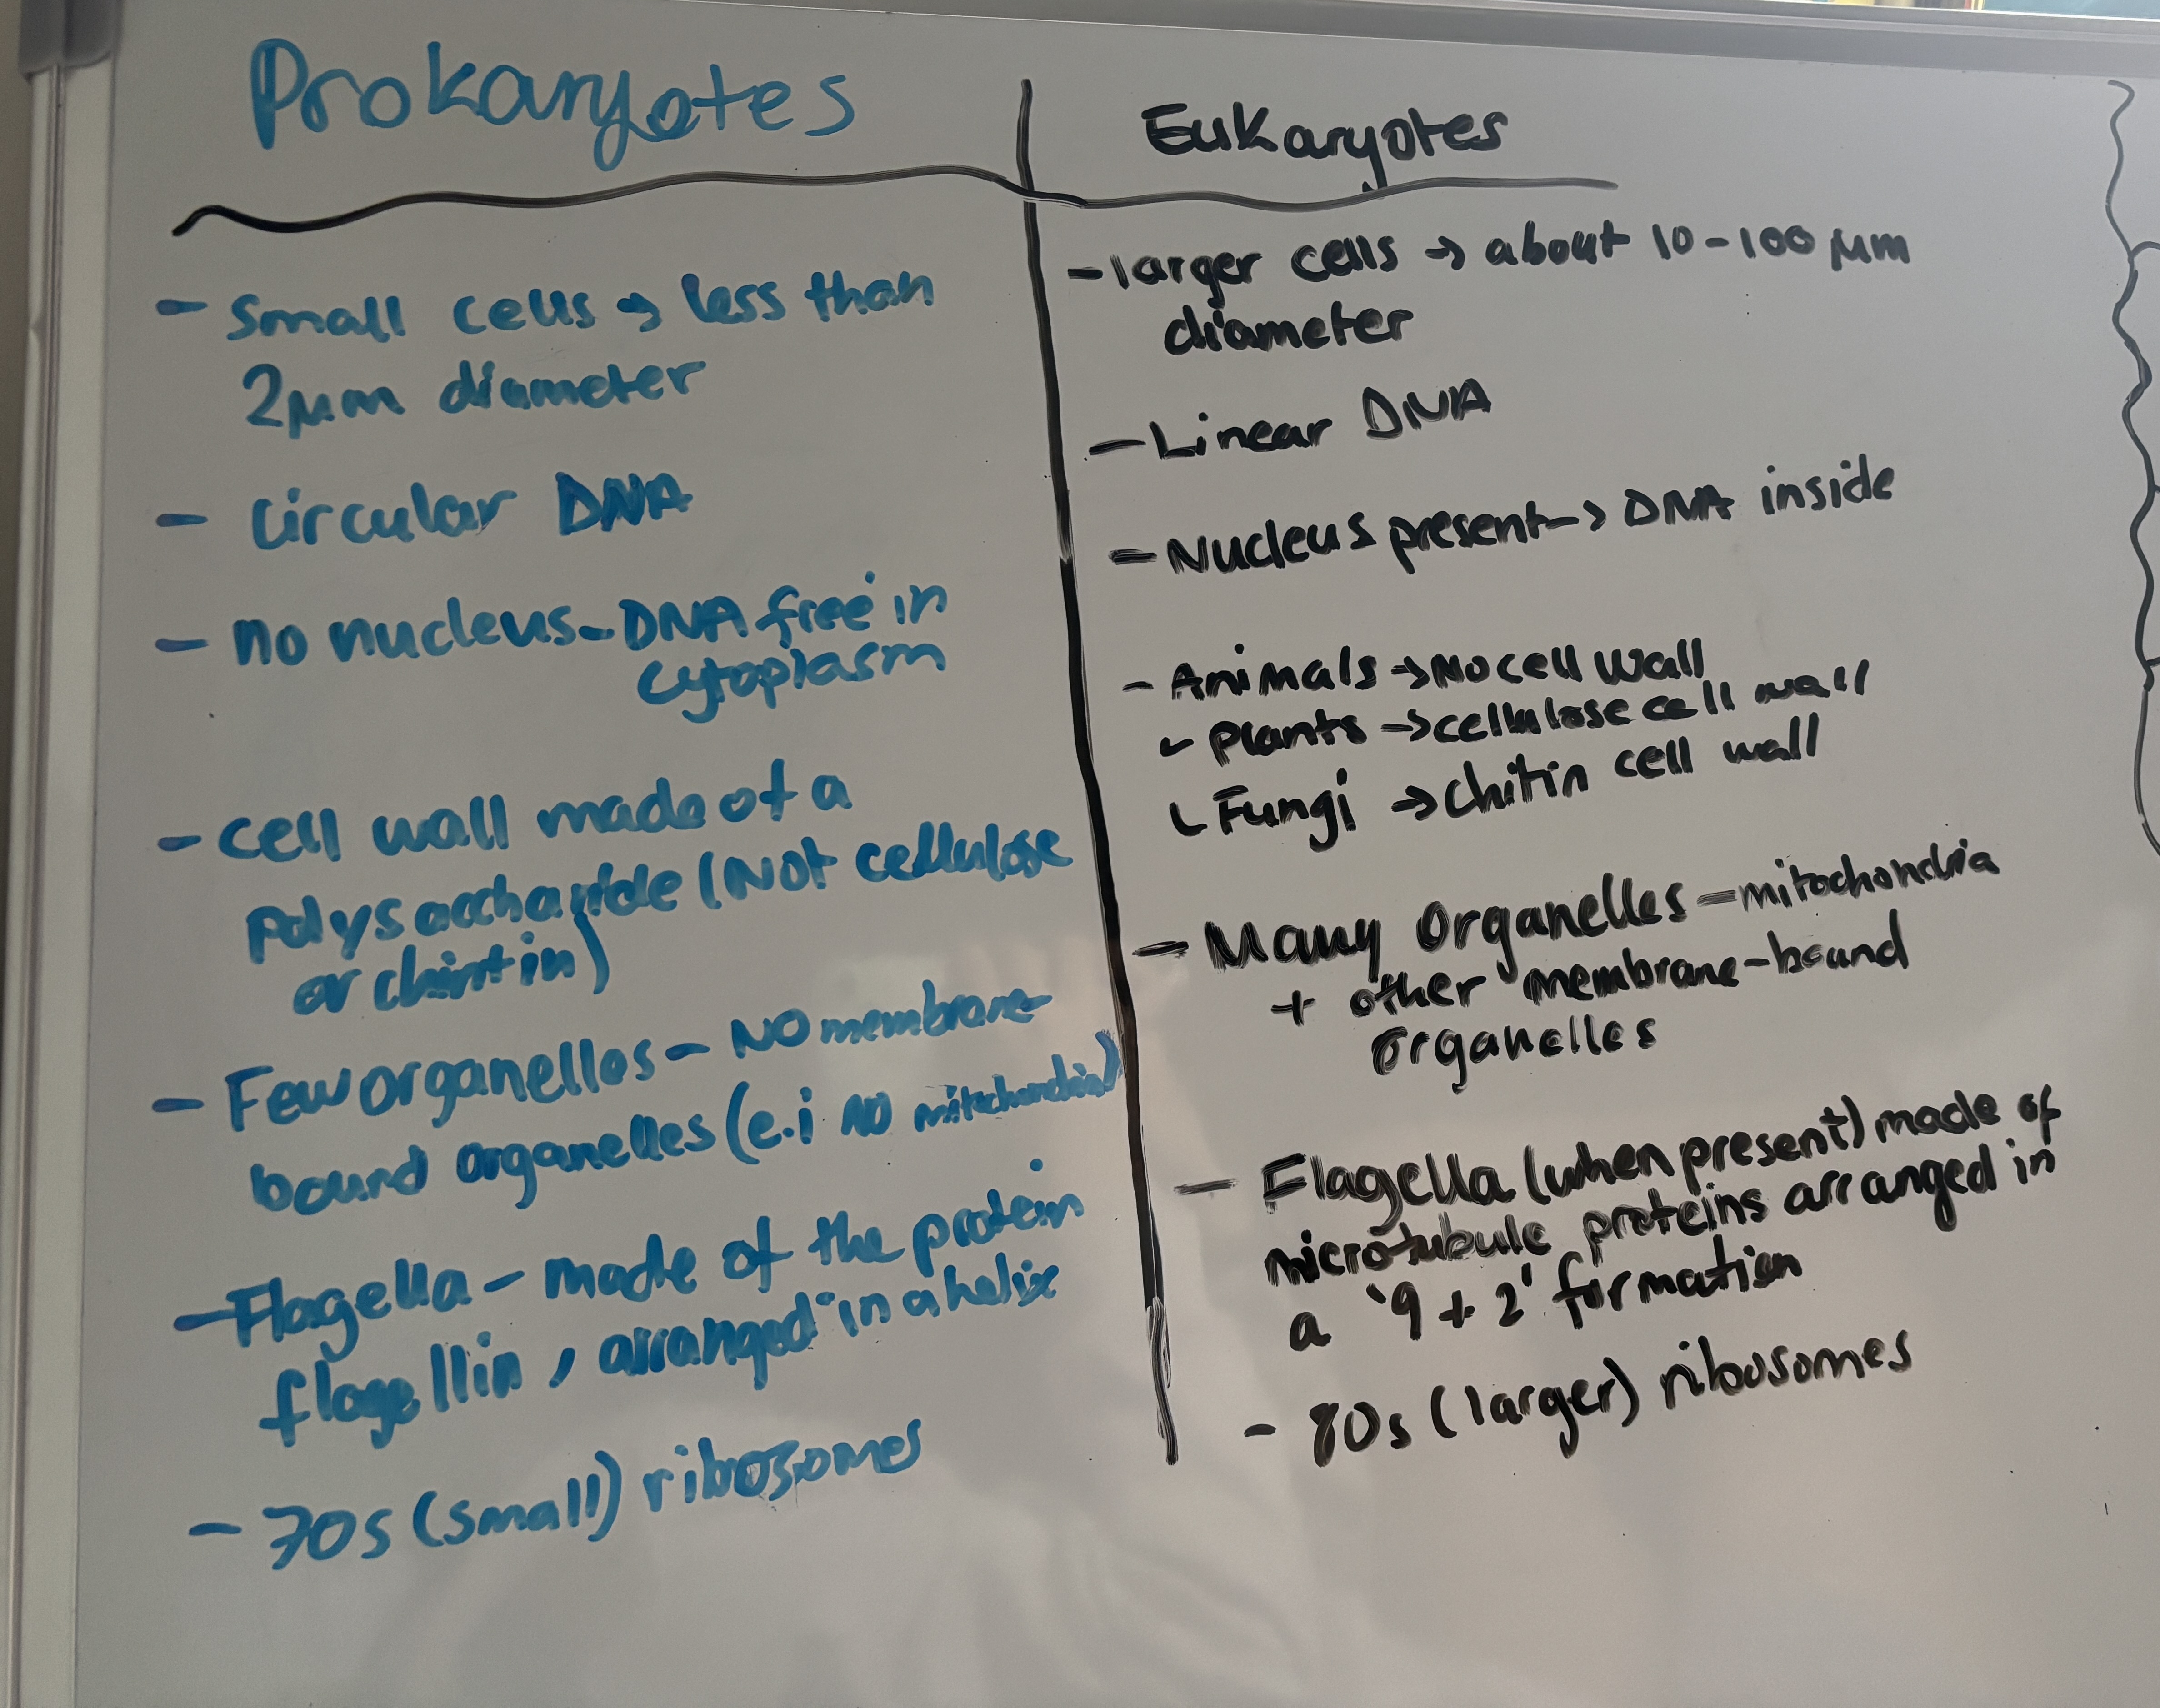 Prokaryotes
- small cells → less than
2μm diameter
- circular DNA
- no nucleus - DNA free in
cytoplasm
- cell wall made of a
polysaccharide (NOt cellulose
or chintin)
- Few organelles - NO membrane-
bound organelles (e.i NO mitochondria)
- Flagella - made of the protein
flagellin, arranged in a helix
- 70s (small) ribosomes
Eukaryotes
- larger cells → about 10-100 μm
diameter
- Linear DNA
- Nucleus present -> DNA inside
- Animals → No cell wall
- Plants → cellulose cell wall
- Fungi → chitin cell wall
- Many Organelles - mitochondria
+ other membrane-bound
organelles
- Flagella (when present) made of
microtubule proteins arranged in
a '9 + 2' formation
- 80s (larger) ribosomes